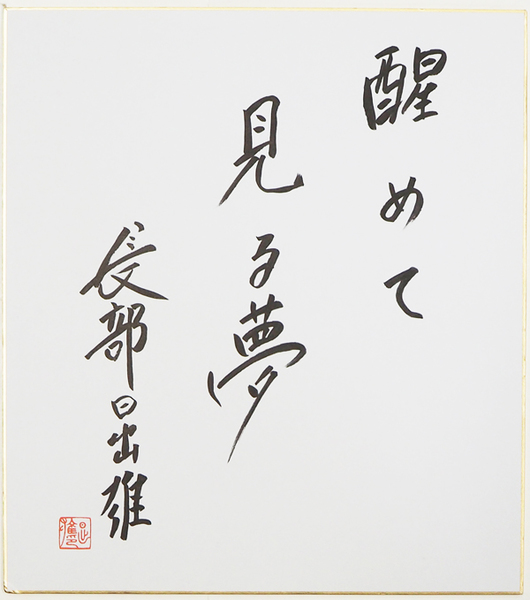 醒めて
見る夢
長部日出雄